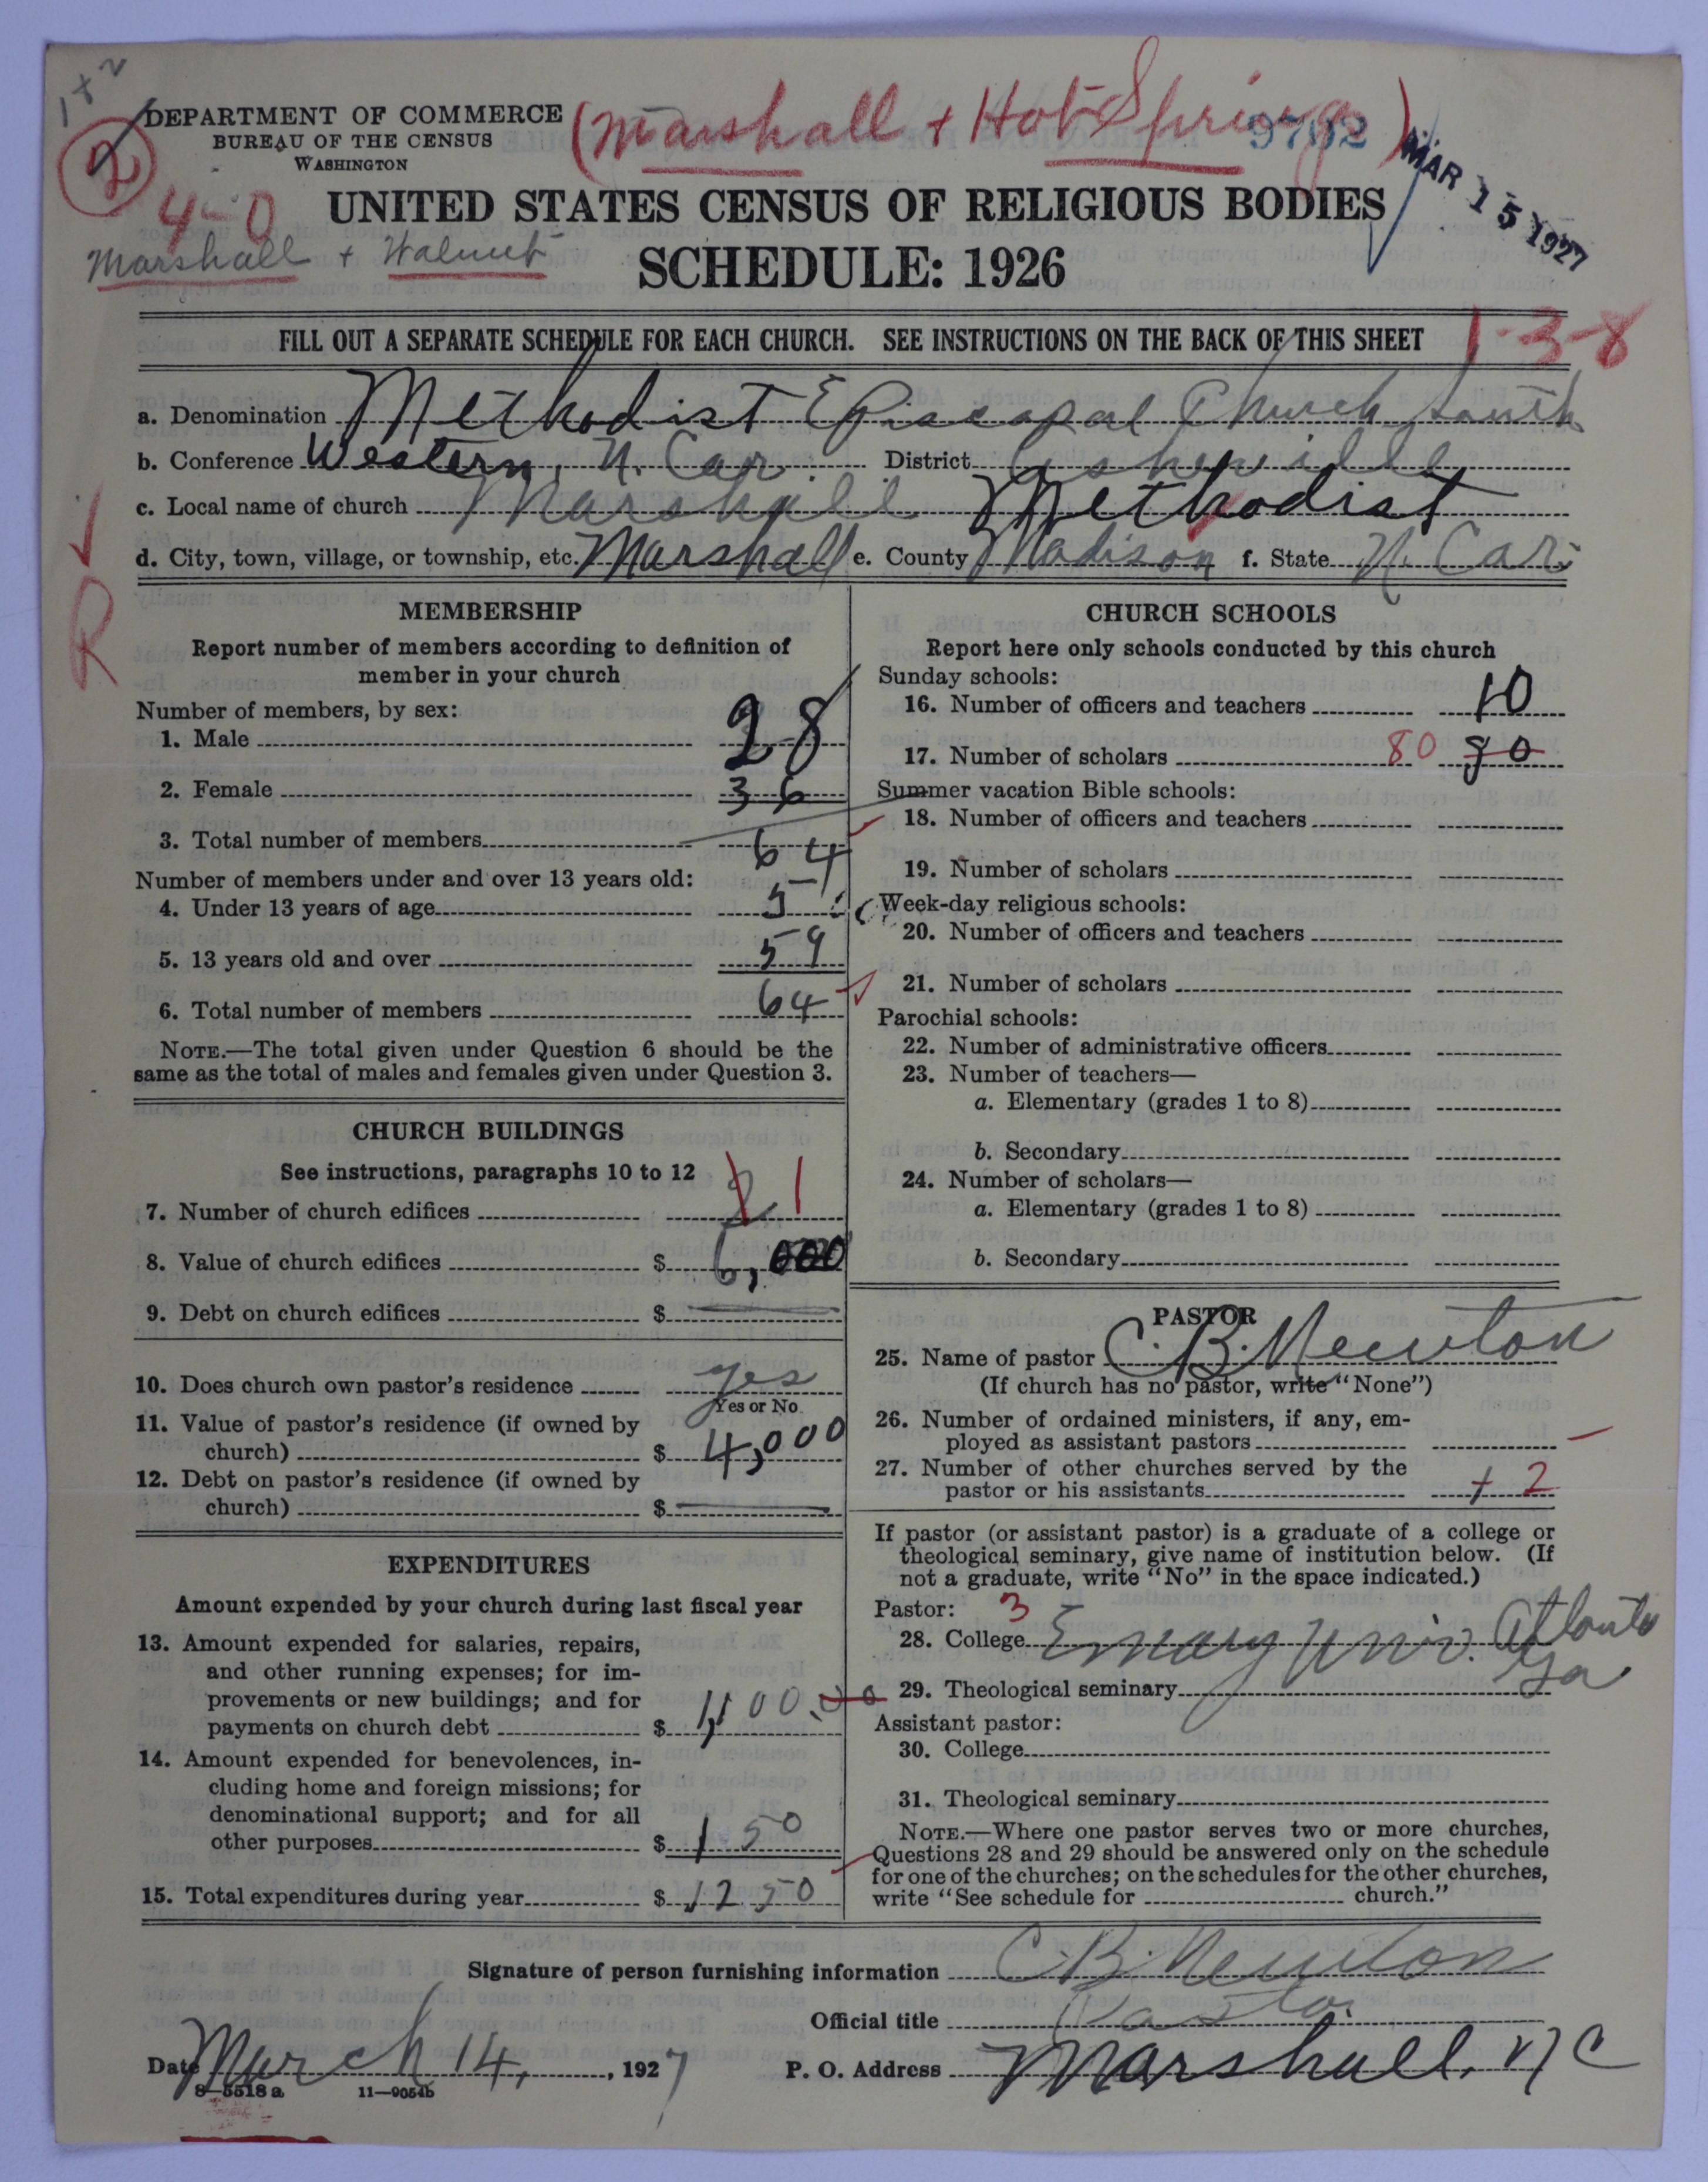 1 + 2
DEPARTMENT OF COMMERCE
BUREAU OF THE CENSUS
WASHINGTON
(Marshall + Hot Springs)
9702
MAR 15 1927
2
4-0
Marshall + Walnut
UNITED STATES CENSUS OF RELIGIOUS BODIES
SCHEDULE: 1926
FILL OUT A SEPARATE SCHEDULE FOR EACH CHURCH. SEE INSTRUCTIONS ON THE BACK OF THIS SHEET
1-3-8
a. Denomination Methodist Episcopal Church South
b. Conference Western, N. Car. District Asheville
c. Local name of church Marshall Methodist
d. City, town, village, or township, etc. Marshall e. County Madison f. State N. Car.
R
MEMBERSHIP
Report number of members according to definition of
member in your church
Number of members, by sex:
1. Male 28
2. Female 36
3. Total number of members 64
Number of members under and over 13 years old:
4. Under 13 years of age 5
5. 13 years old and over 59
6. Total number of members 64
NOTE.—The total given under Question 6 should be the
same as the total of males and females given under Question 3.
CHURCH BUILDINGS
See instructions, paragraphs 10 to 12
7. Number of church edifices 2 1
8. Value of church edifices $ 6,000
9. Debt on church edifices $
10. Does church own pastor's residence yes
Yes or No
11. Value of pastor's residence (if owned by
church) $ 4,000
12. Debt on pastor's residence (if owned by
church) $
EXPENDITURES
Amount expended by your church during last fiscal year
13. Amount expended for salaries, repairs,
and other running expenses; for im-
provements or new buildings; and for
payments on church debt $ 1,100.00
14. Amount expended for benevolences, in-
cluding home and foreign missions; for
denominational support; and for all
other purposes $ 150
15. Total expenditures during year $ 1250
CHURCH SCHOOLS
Report here only schools conducted by this church
Sunday schools:
16. Number of officers and teachers 10
17. Number of scholars 80 80
Summer vacation Bible schools:
18. Number of officers and teachers
19. Number of scholars
Week-day religious schools:
20. Number of officers and teachers
21. Number of scholars
Parochial schools:
22. Number of administrative officers
23. Number of teachers—
a. Elementary (grades 1 to 8)
b. Secondary
24. Number of scholars—
a. Elementary (grades 1 to 8)
b. Secondary
PASTOR
25. Name of pastor C. B. Newton
(If church has no pastor, write "None")
26. Number of ordained ministers, if any, em-
ployed as assistant pastors
27. Number of other churches served by the
pastor or his assistants + 2
If pastor (or assistant pastor) is a graduate of a college or
theological seminary, give name of institution below. (If
not a graduate, write "No" in the space indicated.)
Pastor: 3
28. College Emory Univ. Atlanta
Ga
29. Theological seminary
Assistant pastor:
30. College
31. Theological seminary
NOTE.—Where one pastor serves two or more churches,
Questions 28 and 29 should be answered only on the schedule
for one of the churches; on the schedules for the other churches,
write "See schedule for church."
Signature of person furnishing information C. B. Newton
Official title Pastor
Date March 14, 1927 P. O. Address Marshall, N C
8—5518 a 11—9054b